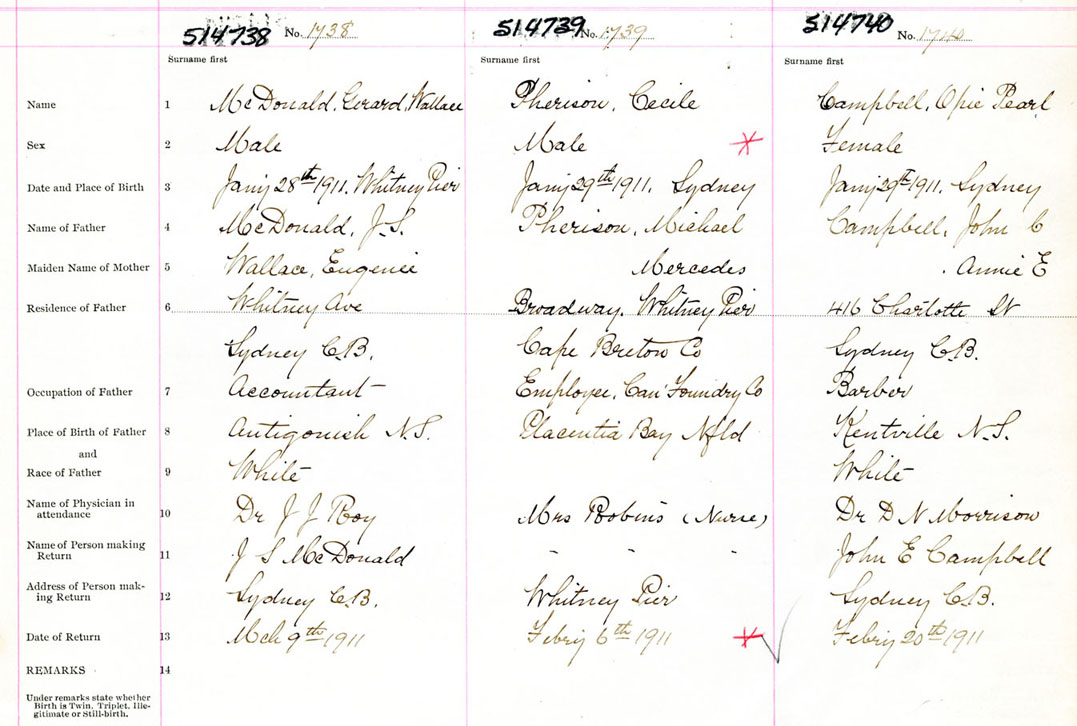 514738 No. 1738 514739 No. 1739 514740 No. 1740
Surname first Surname first Surname first
Name 1 McDonald, Gerard, Wallace Pherison, Cecile Campbell, Opie Pearl
Sex 2 Male Male Female
Date and Place of Birth 3 Jany 28th 1911, Whitney Pier Jany 29th 1911, Sydney Jany 29th 1911, Sydney
Name of Father 4 McDonald, J.S. Pherison, Michael Campbell, John C
Maiden Name of Mother 5 Wallace, Eugenie Mercedes Annie E
Residence of Father 6 Whitney Ave Broadway, Whitney Pier 416 Charlotte St
Sydney C.B. Cape Breton Co Sydney C.B.
Occupation of Father 7 Accountant Employee, Can' Foundry Co Barber
Place of Birth of Father 8 Antigonish N.S. Placentia Bay Nfld Kentville N.S.
and
Race of Father 9 White White
Name of Physician in
attendance 10 Dr J J Roy Mrs Robins (Nurse) Dr D N Morrison
Name of Person making
Return 11 J S McDonald " " " John E Campbell
Address of Person mak-
ing Return 12 Sydney C.B. Whitney Pier Sydney C.B.
Date of Return 13 Mch 9th 1911 Febry 6th 1911 Febry 20th 1911
REMARKS 14
Under remarks state whether
Birth is Twin, Triplet, Ille-
gitimate or Still-birth.